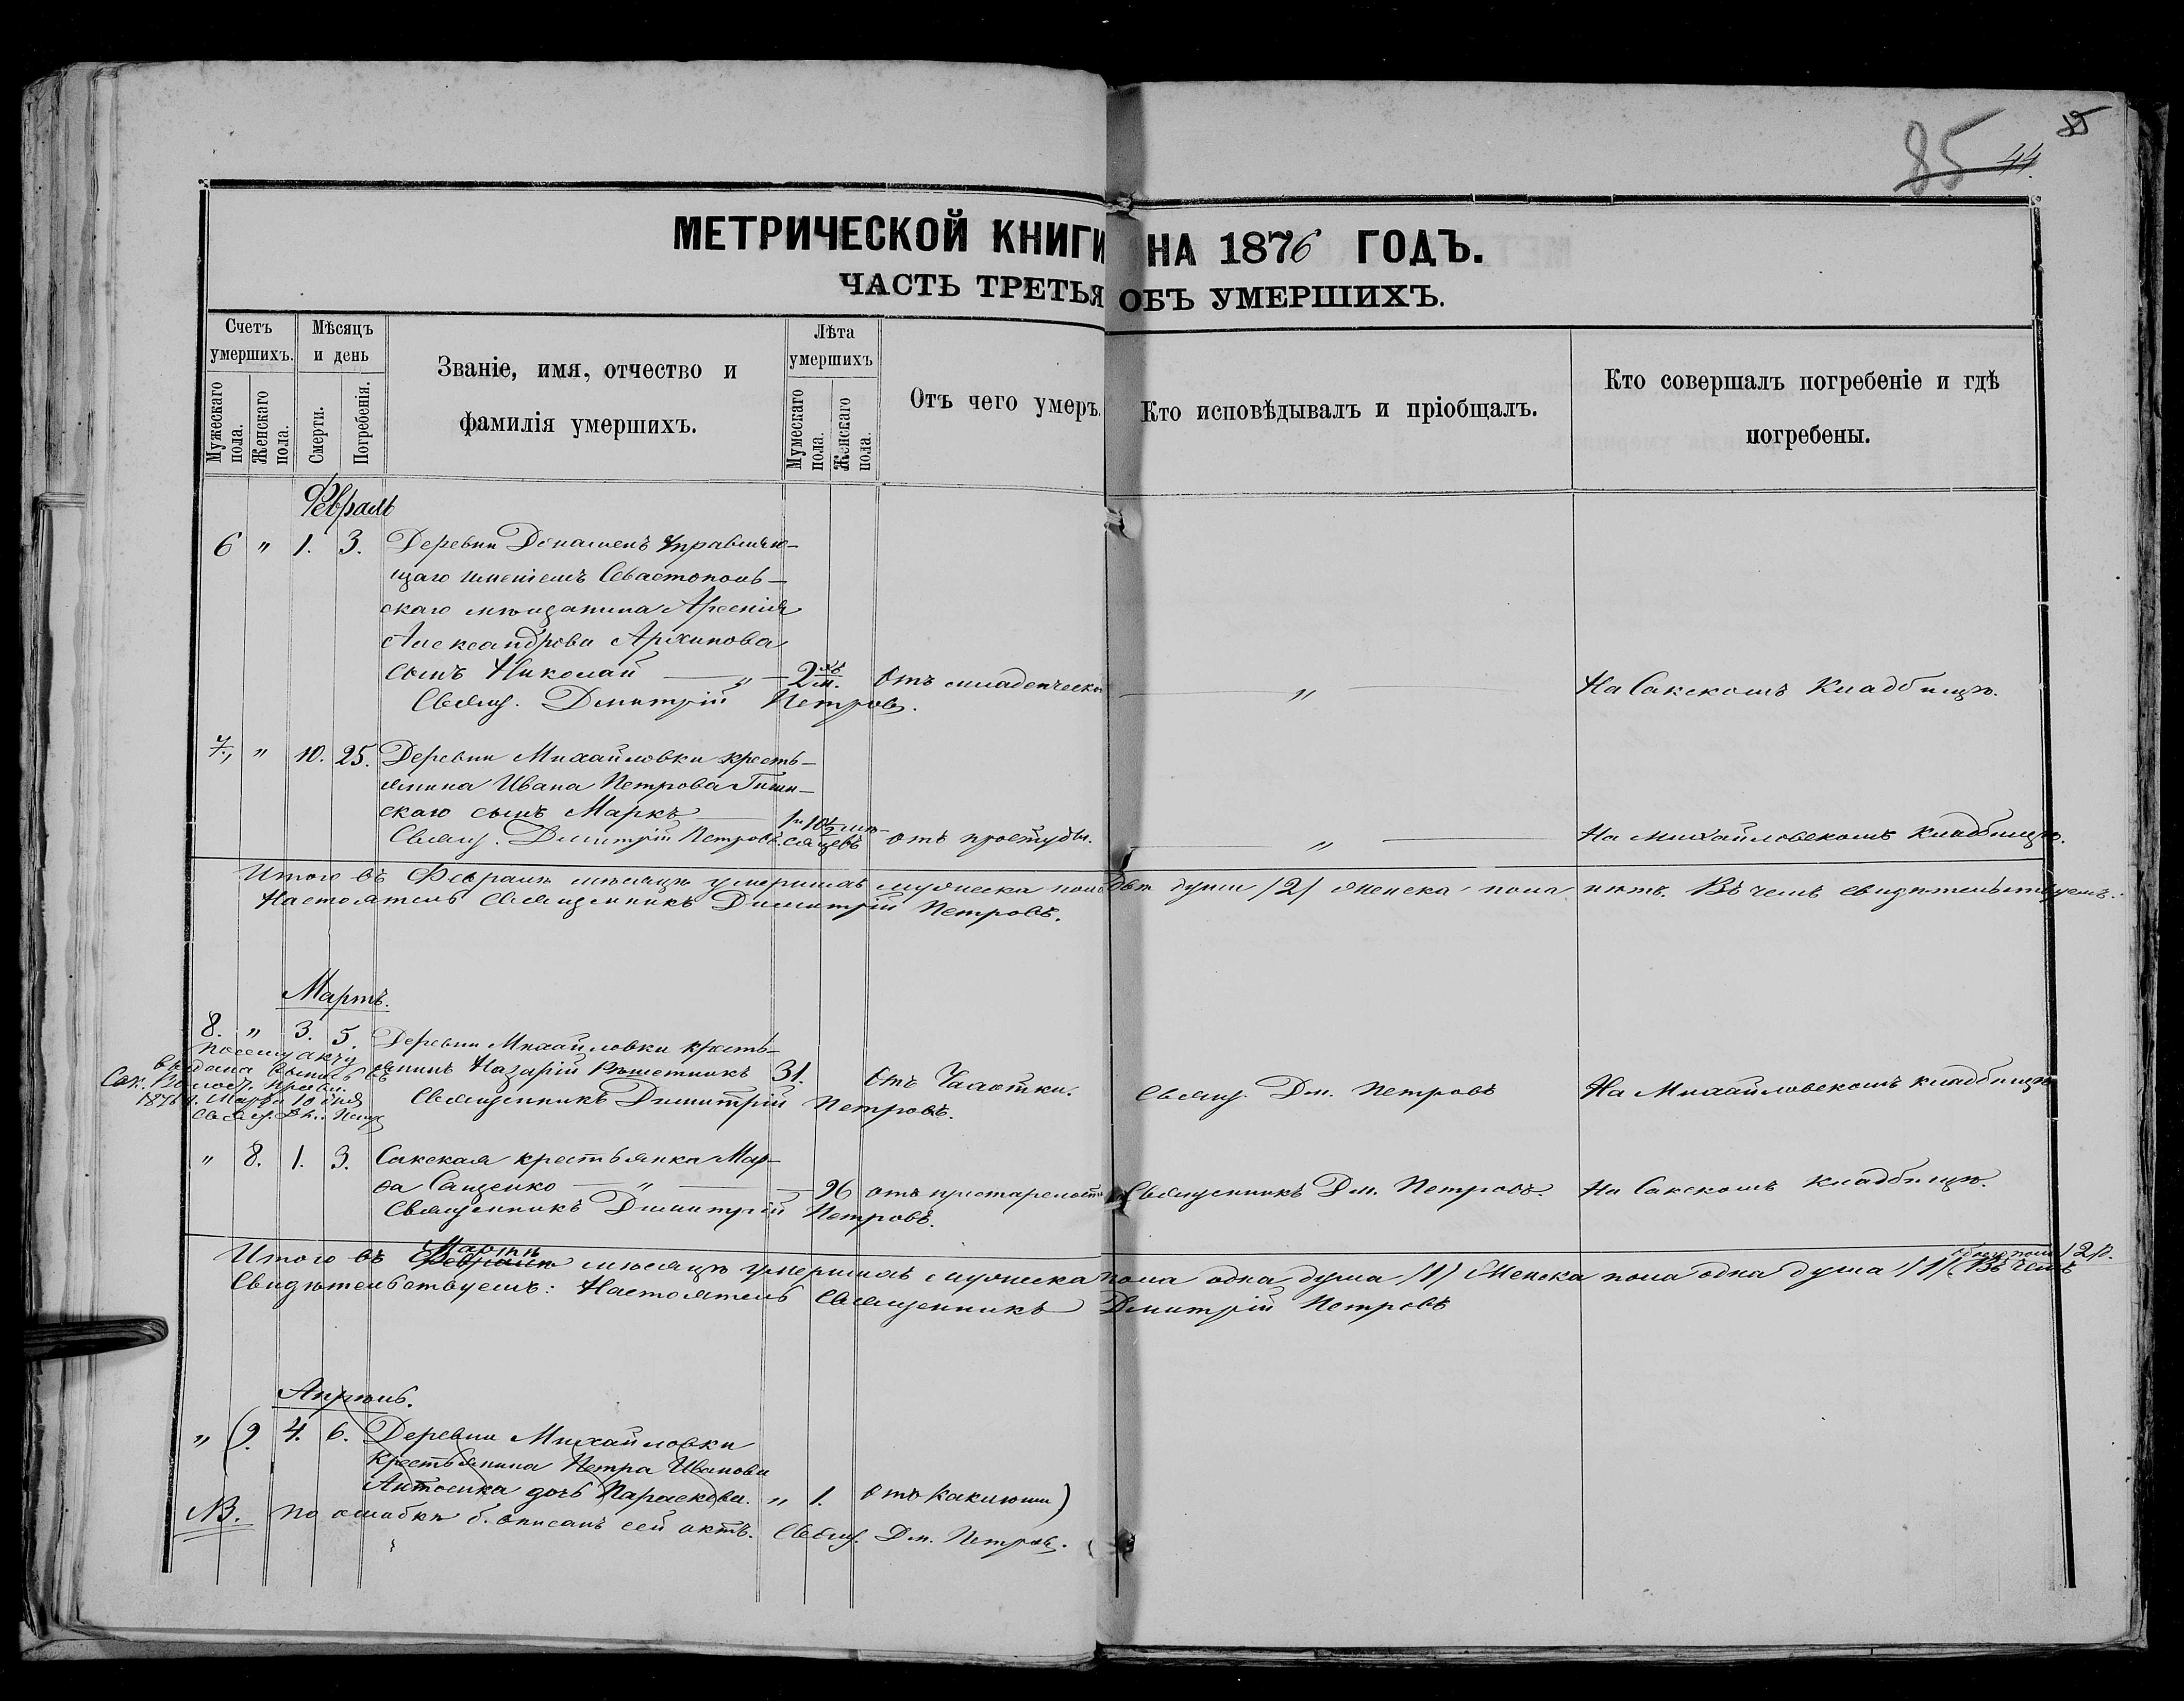 85
44
85
МЕТРИЧЕСКОЙ КНИГИ НА 1876 ГОДЪ.
ЧАСТЬ ТРЕТЬЯ ОБЪ УМЕРШИХЪ.
Счетъ умершихъ.
Мужескаго пола.
Женскаго пола.
Мѣсяцъ и день
Смерти.
Погребенія.
Званіе, имя, отчество и
фамилія умершихъ.
Лѣта умершихъ
Мумескаго пола.
Женскаго пола.
Отъ чего умеръ.
Кто исповѣдывалъ и пріобщалъ.
Кто совершалъ погребеніе и гдѣ
погребены.
Февраль
6 " 1. 3. Деревни управляю-
щаго имѣніемъ Севастополь-
скаго мѣщанина Арсенія
Александрова Архипова
сынъ Николай — " — 2 м. Отъ младенческ " На Сакскомъ Кладбищѣ.
Свящ. Димитрій Петровъ.
7., " 10. 25. Деревни Михайловки кресть-
янина Ивана Петрова
скаго сынъ Маркъ — мѣ-
Свящ. Димитрій Петровъ. сяцевъ отъ простуды. " На Михайловскомъ кладбищѣ.
Итого въ Февралѣ мѣсяцѣ умершихъ мужеска пола двѣ души /2/ женска пола нѣтъ. Въ чемъ свидѣтельствуемъ:
Настоятель Священникъ Димитрій Петровъ.
Мартъ.
8. " 3. 5. Деревни Михайловки кресть-
По сему акту
янинъ Назарій Рѣшетникъ 31. Отъ Чахотки. Свящ. Дм. Петровъ На Михайловскомъ кладбищѣ
выдана выпись въ
Сак. Волост. правл.
1876 г. Марта 10 дня
Свящ. Дм. Петр
Священникъ Димитрій Петровъ.
" 8. 1. 3. Сакская крестьянка Мар-
ѳа Сащенко — " — 96 отъ престарелости Священникъ Дм. Петровъ. На Сакскомъ кладбищѣ.
Священникъ Димитрій Петровъ.
Мартѣ
обоего пола /2/.
Итого въ Февралѣ мѣсяцѣ умершихъ мужеска пола одна душа /1/ Женска пола одна душа /1/ Въ чемъ
Свидѣтельствуемъ: Настоятель Священникъ Димитрій Петровъ
Апрѣль.
" (9. 4. 6. Деревни Михайловки
Крестьянина Петра Иванова
Антоенка дочь Параскева. " 1. Отъ Каклюши)
NB. По ошибкѣ б. вписанъ сей актъ. Свящ. Дм. Петровъ.